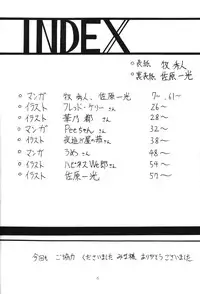 INDEX
○表紙 牧秀人
○裏表紙 佐原一光
○マンガ 牧秀人、佐原一光 7〜、61〜
○イラスト フレッド・ケリーさん 26〜
○イラスト 葉乃都さん 28〜
○マンガ Peeちゃん 32〜
○イラスト さん 38〜
○マンガ うめさん 48〜
○イラスト ハピネスWe郎さん 54〜
○イラスト 佐原一光 57〜
今回も ご協力 くださいました みなな様 ありがとうございました